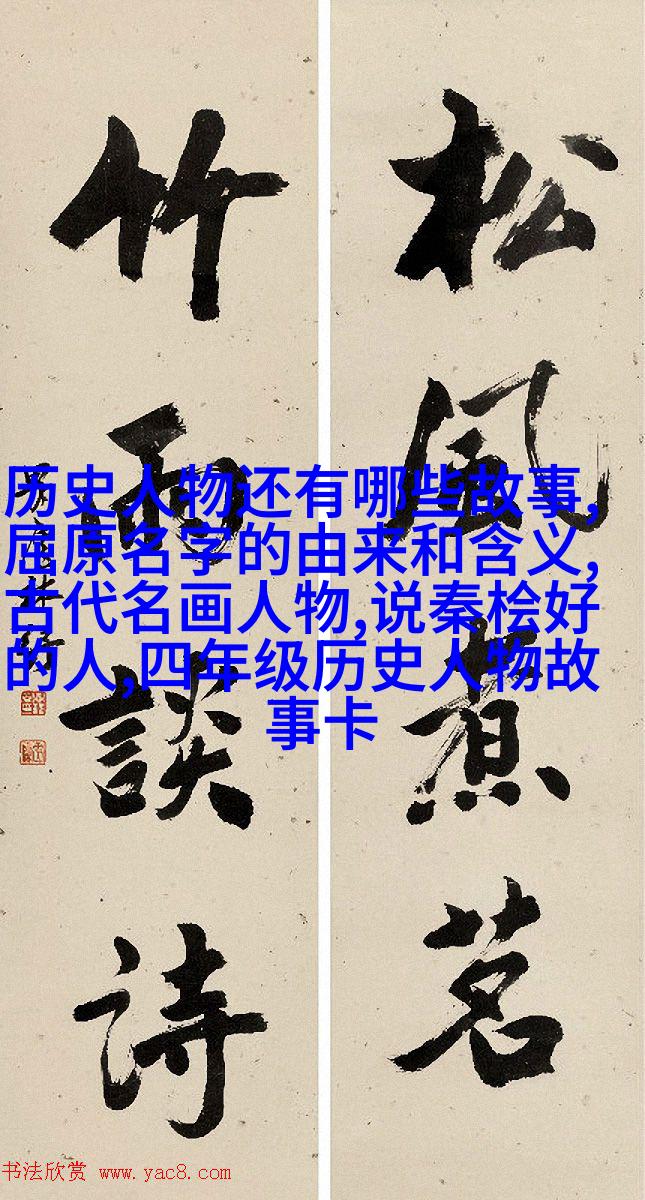 松風煮茗
竹雨談詩
历史人物还有哪些故事,
屈原名字的由来和含义,
古代名画人物,说秦桧好
的人,四年级历史人物故
事卡
书法欣赏 www.yac8.com